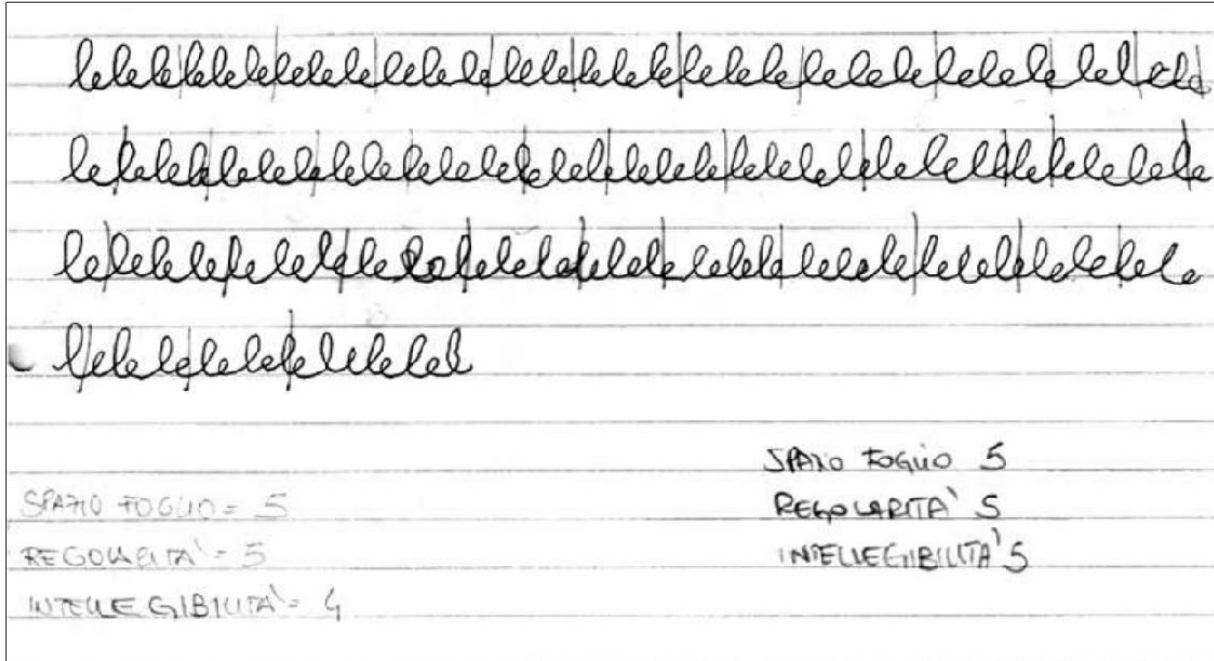 lelelelelelelelelelelelelelelelelelelelelelelelele
lelelelelelelelelelelelelelelelelelelelelelelelele
lelelelelelelelelelelelelelelelelelelelelelelele
lelelelelelelelelel
SPAZIO FOGLIO 5
SPAZIO FOGLIO = 5
REGOLARITA' 5
REGOLARITA' = 5
INTELLEGIBILITA' 5
INTELLEGIBILITA' = 4